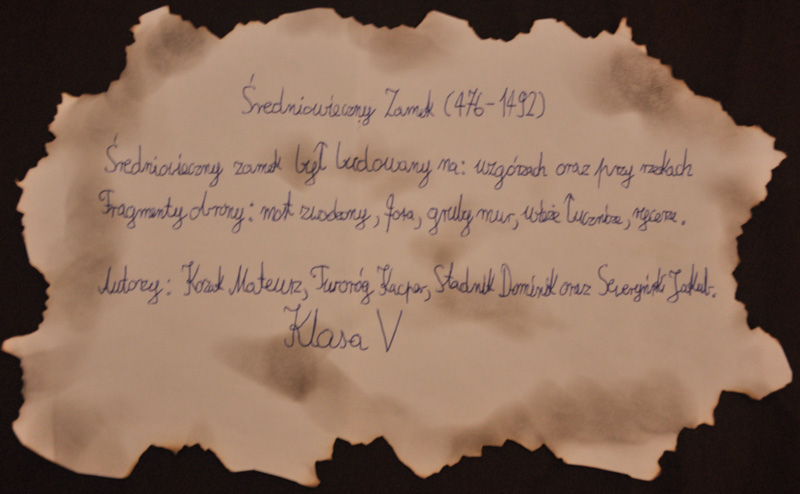 Średniowieczny Zamek (476-1492)
Średniowieczny zamek był budowany na: wzgórzach oraz przy rzekach
Fragmenty obrony: most zwodzony, fosa, gruby mur, wieże łucznicze, rycerze.
Autorzy: Kozak Mateusz, Tworóg Kacper, Stadnik Dominik oraz Seweryński Jakub.
Klasa V